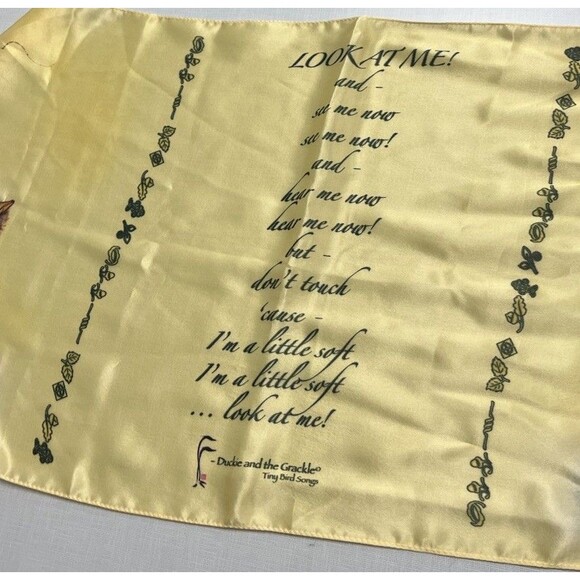 LOOK AT ME!
and -
see me now
see me now!
and -
hear me now
hear me now!
but -
don't touch
'cause -
I'm a little soft
I'm a little soft
... look at me!
- Duckie and the Grackle©
Tiny Bird Songs